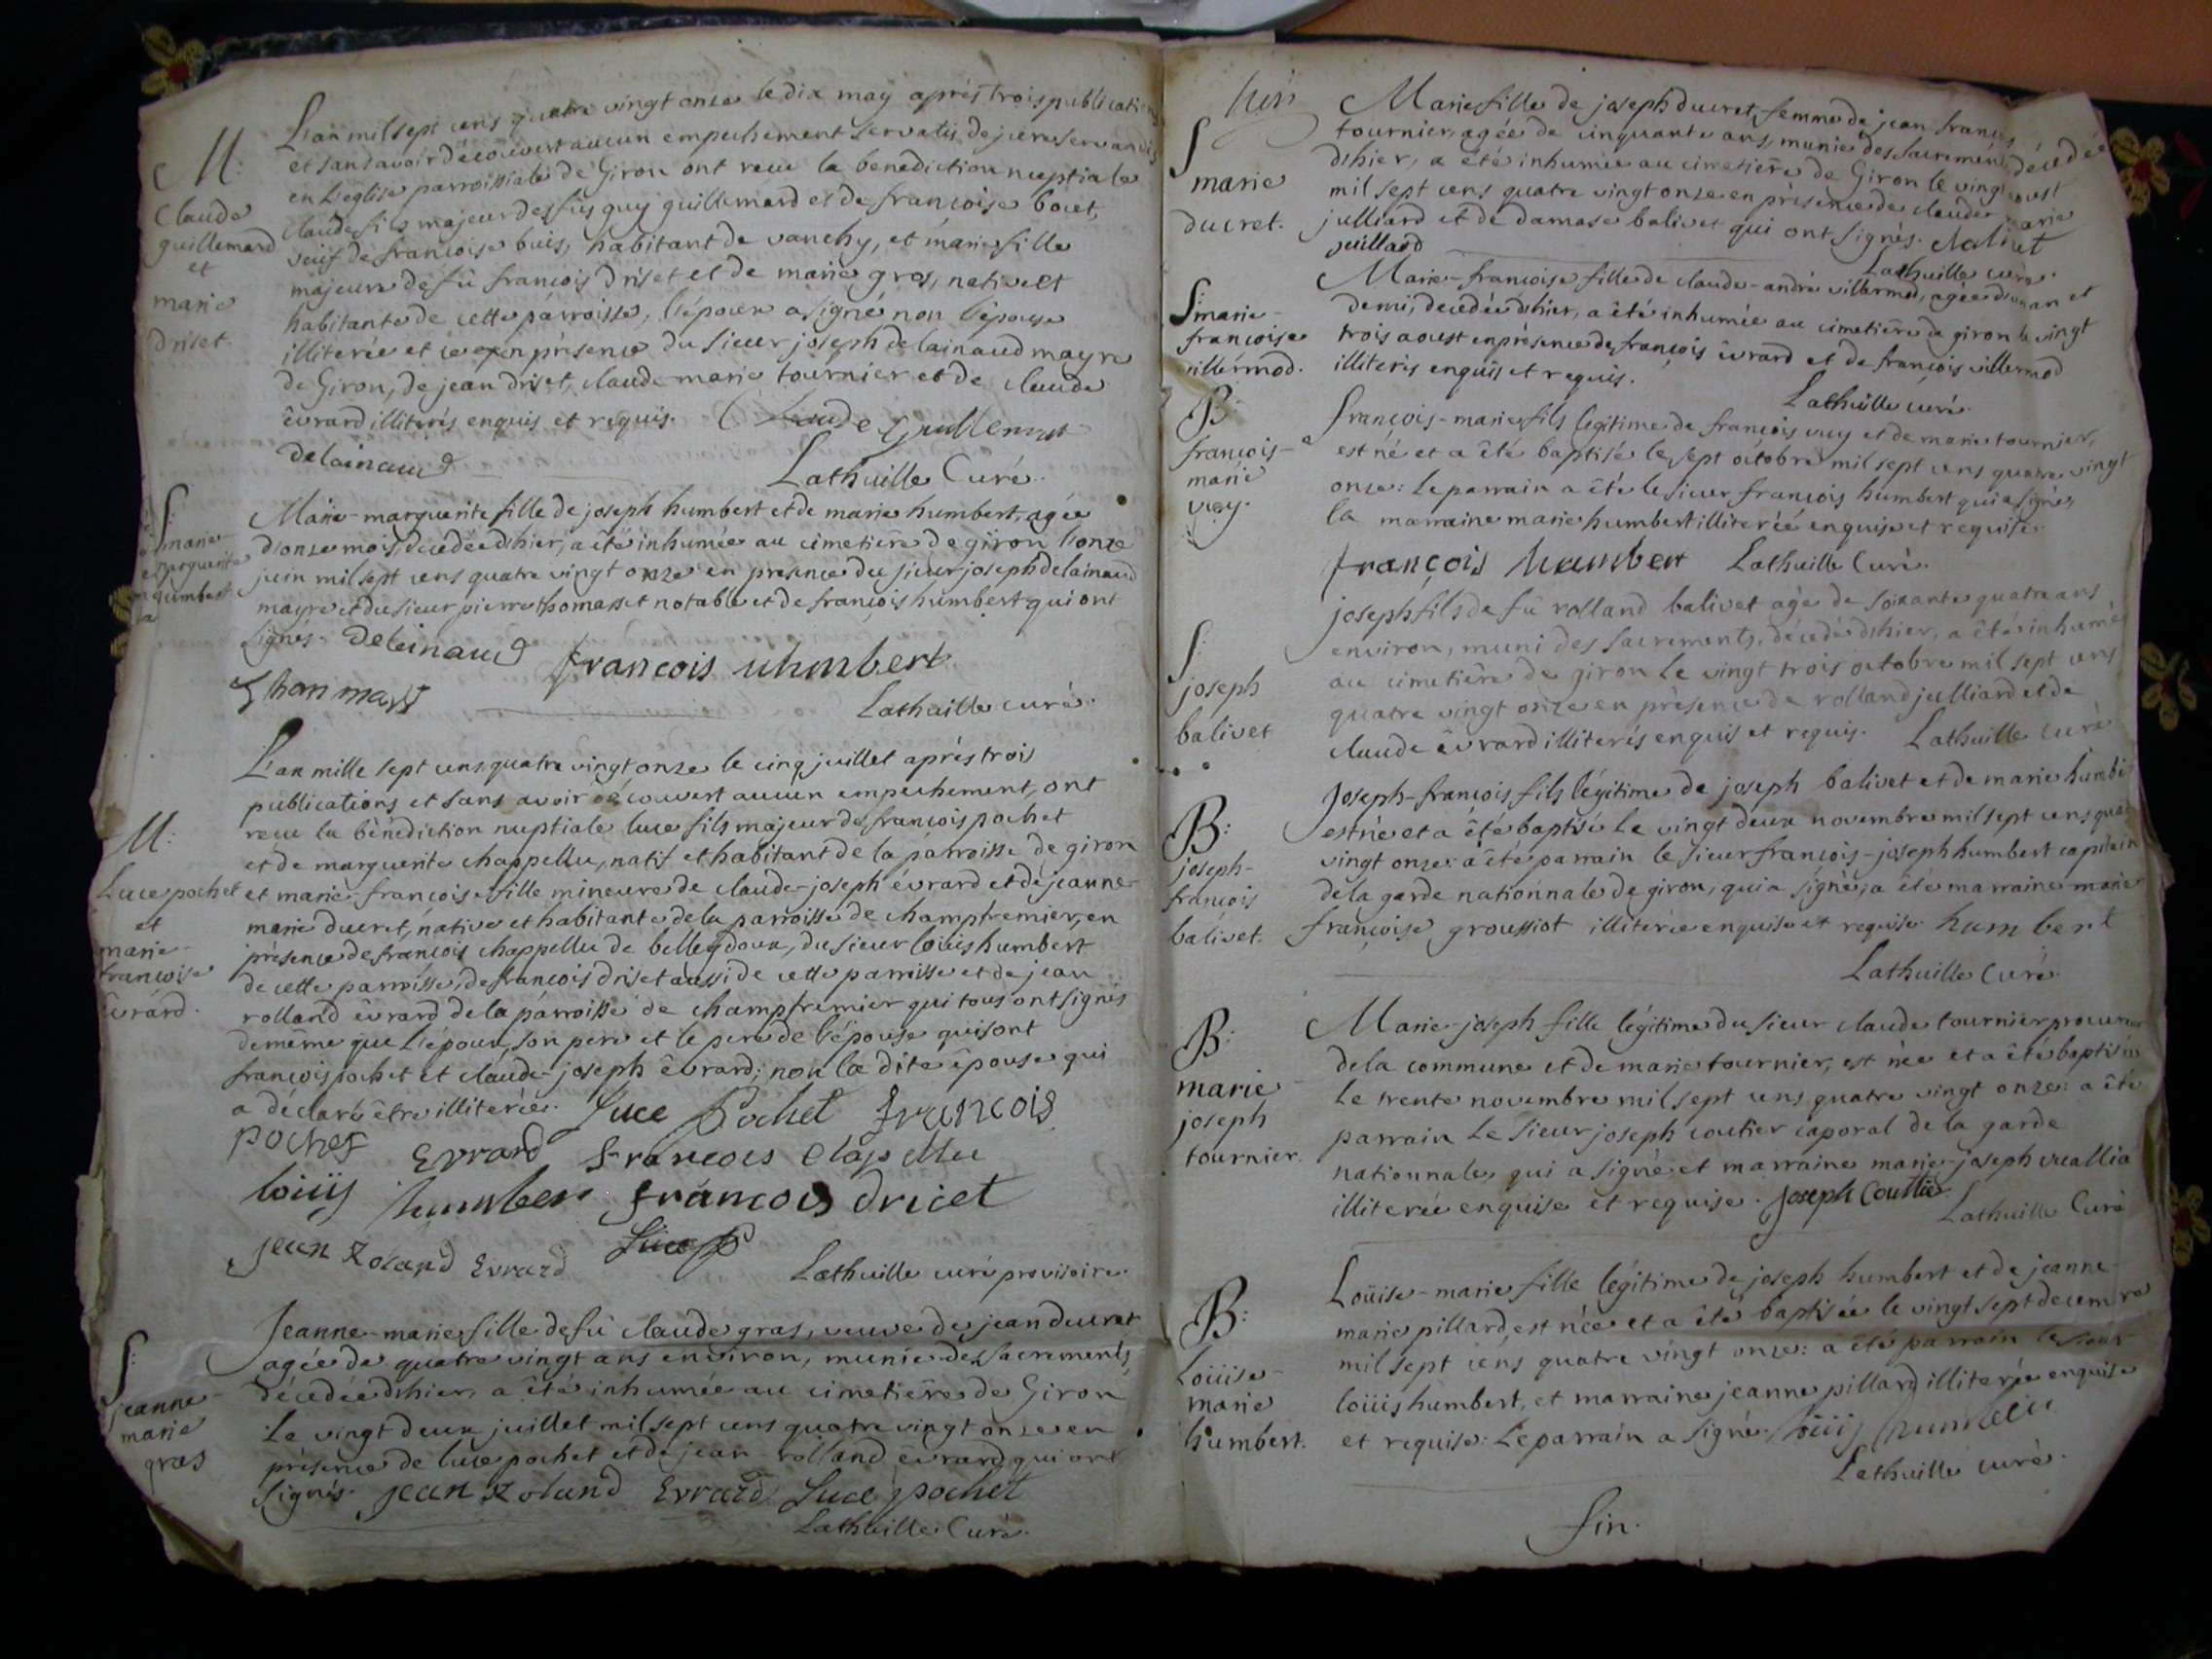 M:
Claude
guillemard
et
marie
driset.
L'an mil sept cens quatre vingt onze le dix may aprés trois publications
et sans avoir découvert aucun empechement servatis de jure servandis
en L'eglise parroissiale de Giron ont reçu la benediction nuptiale
claude fils majeur de fû guy guillemard et de françoise bouet,
veuf de françoise buis, habitant de vanchy, et marie fille
majeure de fû françois driset et de marie gros, native et
habitante de cette parroisse, l'époux a signé non l'épouse
illiterée et ce en présence du sieur joseph delainaud mayre
de Giron, de jean driset, claude marie tournier et de claude
êvrard illiterés enquis et requis. Claude Guillermet
delainaud
Lathuille Curé.
S:
marie-
marguerite
humbert
Marie-marguerite fille de joseph humbert et de marie humbert, agée
d'onze mois, décedée d'hier, a êté inhumée au cimetiere de giron l'onze
juin mil sept cens quatre vingt onze en presence du sieur joseph delainaud
mayre et du sieur pierre thomasset notable et de françois humbert qui ont
signés. Delainaud francois uhmbert
Lathuille curé.
M:
Luce pochet
et
marie-
françoise
êvrard.
L'an mille sept cens quatre vingt onze le cinq juillet aprés trois
publications et sans avoir découvert aucun empechement, ont
reçu la bénediction nuptiale luce fils majeur de françois pochet
et de marguerite chappellu, natif et habitant de la parroisse de giron
et marie-françoise fille mineure de claude-joseph évrard et de jeanne-
marie ducret, native et habitante de la parroisse de champfremier, en
présence de françois chappellu de belleydoux, du sieur loüis humbert
de cette parroisse, de françois driset aussi de cette parroisse et de jean
rolland êvrard de la parroisse de champfremier qui tous ont signés
de même que L'époux, son pere et le pere de l'épouse qui sont
françois pochet et claude-joseph êvrard; non la dite épouse qui
a déclaré être illiterée. Luce Pochet francois
pochet Evrard francois Chapellu
loüij humber francois dricet
jean Roland Evrard Luce p
Lathuille curé provisoire.
S:
jeanne-
marie
gras
Jeanne-marie fille de fû claude gras, veuve de jean ducret
agée de quatre vingt ans environ, munie des sacrements,
décedée d'hier, a êté inhumée au cimetiére de Giron
Le vingt deux juillet mil sept cens quatre vingt onze en
présence de luce pochet et de jean rolland evrard qui ont
signés. jean Roland Evrard Luce pochet
Lathuille Curé.
S
marie
ducret.
Marie fille de joseph ducret, femme de jean françois
tournier, agée de cinquante ans, munie des sacremens, décedée
d'hier, a êté inhumée au cimetiére de Giron le vingt aoust
mil sept cens quatre vingt onze en présence de claude marie
julliard et de damase balivet qui ont signés. balivet
juillard
Lathuille curé.
S:
marie-
françoise
villermod.
Marie-françoise fille de claude-andré villermod, agée d'un an et
demi, decedée d'hier, a êté inhumée au cimetiére de giron le vingt
trois aoust en présence de françois êvrard et de françois villermod
illiterés enquis et requis.
Lathuille curé.
B:
françois-
marie
vuy.
françois-marie fils legitime de françois vuy et de marie tournier,
est né et a êté baptisé le sept octobre mil sept cens quatre vingt
onze: le parrain a êté le sieur françois humbert qui a signé,
la marraine marie humbert illiterée enquise et requise.
françois humbert Lathuille Curé.
S:
joseph
balivet
joseph fils de fû rolland balivet agé de soixante quatre ans
environ, muni des sacrements, décedé d'hier, a êté inhumé
au cimetiére de giron le vingt trois octobre mil sept cens
quatre vingt onze en présence de rolland julliard et de
claude êvrard illiterés enquis et requis. Lathuille curé
B:
joseph-
françois
balivet.
Joseph-françois fils légitime de joseph balivet et de marie humbert
est né et a êté baptisé Le vingt deux novembre mil sept cens quatre
vingt onze: a êté parrain le sieur françois-joseph humbert capitaine
de la garde nationnale de giron, qui a signé, a êté marraine marie
françoise groussiot illiterée enquise et requise humbert
Lathuille Curé.
B:
marie
joseph
tournier.
Marie-joseph fille légitime du sieur claude tournier procureur
de la commune et de marie tournier, est née et a êté baptisée
Le trente novembre mil sept cens quatre vingt onze: a êté
parrain Le sieur joseph coutier caporal de la garde
nationnale, qui a signé et marraine marie-joseph
illiterée enquise et requise. joseph Coutier
Lathuille Curé
B:
Loüise-
marie
humbert.
Loüise-marie fille légitime de joseph humbert et de jeanne-
marie pillard, est née et a êté baptisée le vingt sept decembre
mil sept cens quatre vingt onze: a êté parrain le sieur
loüis humbert, et marraine jeanne pillard illiterée enquise
et requise: Le parrain a signé. loüij humber
Lathuille curé.
fin.